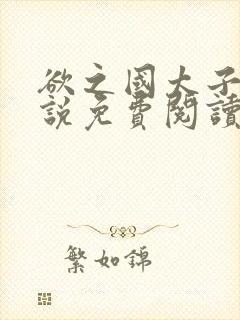 欲之國大子
說免費閱讀
繁如錦